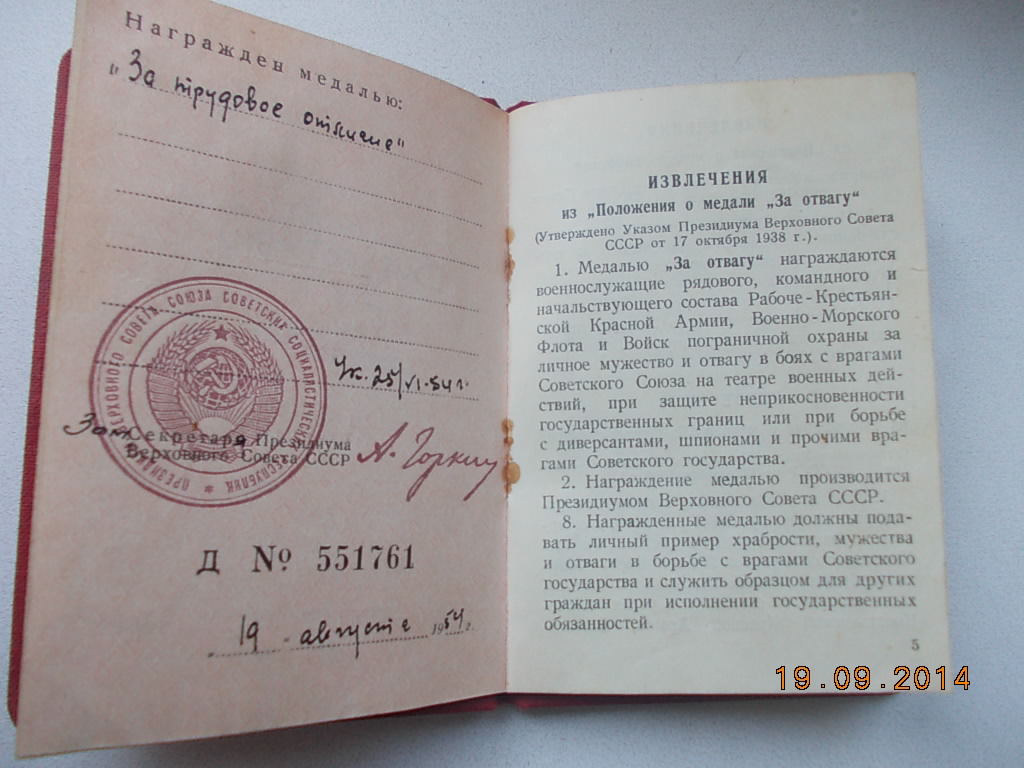 Награжден медалью:
„За трудовое отличие"
ПРЕЗИДИУМ ВЕРХОВНОГО СОВЕТА СОЮЗА СОВЕТСКИХ СОЦИАЛИСТИЧЕСКИХ РЕСПУБЛИК
Ук. 25/VI-54 г.
Зам. Секретаря Президиума
Верховного Совета СССР
А. Горкин
Д № 551761
19 августа 1954 г.
ИЗВЛЕЧЕНИЯ
из „Положения о медали „За отвагу“
(Утверждено Указом Президиума Верховного Совета
СССР от 17 октября 1938 г.).
1. Медалью „За отвагу“ награждаются
военнослужащие рядового, командного и
начальствующего состава Рабоче-Крестьян-
ской Красной Армии, Военно-Морского
Флота и Войск пограничной охраны за
личное мужество и отвагу в боях с врагами
Советского Союза на театре военных дей-
ствий, при защите неприкосновенности
государственных границ или при борьбе
с диверсантами, шпионами и прочими вра-
гами Советского государства.
2. Награждение медалью производится
Президиумом Верховного Совета СССР.
8. Награжденные медалью должны пода-
вать личный пример храбрости, мужества
и отваги в борьбе с врагами Советского
государства и служить образцом для других
граждан при исполнении государственных
обязанностей.
5
19.09.2014